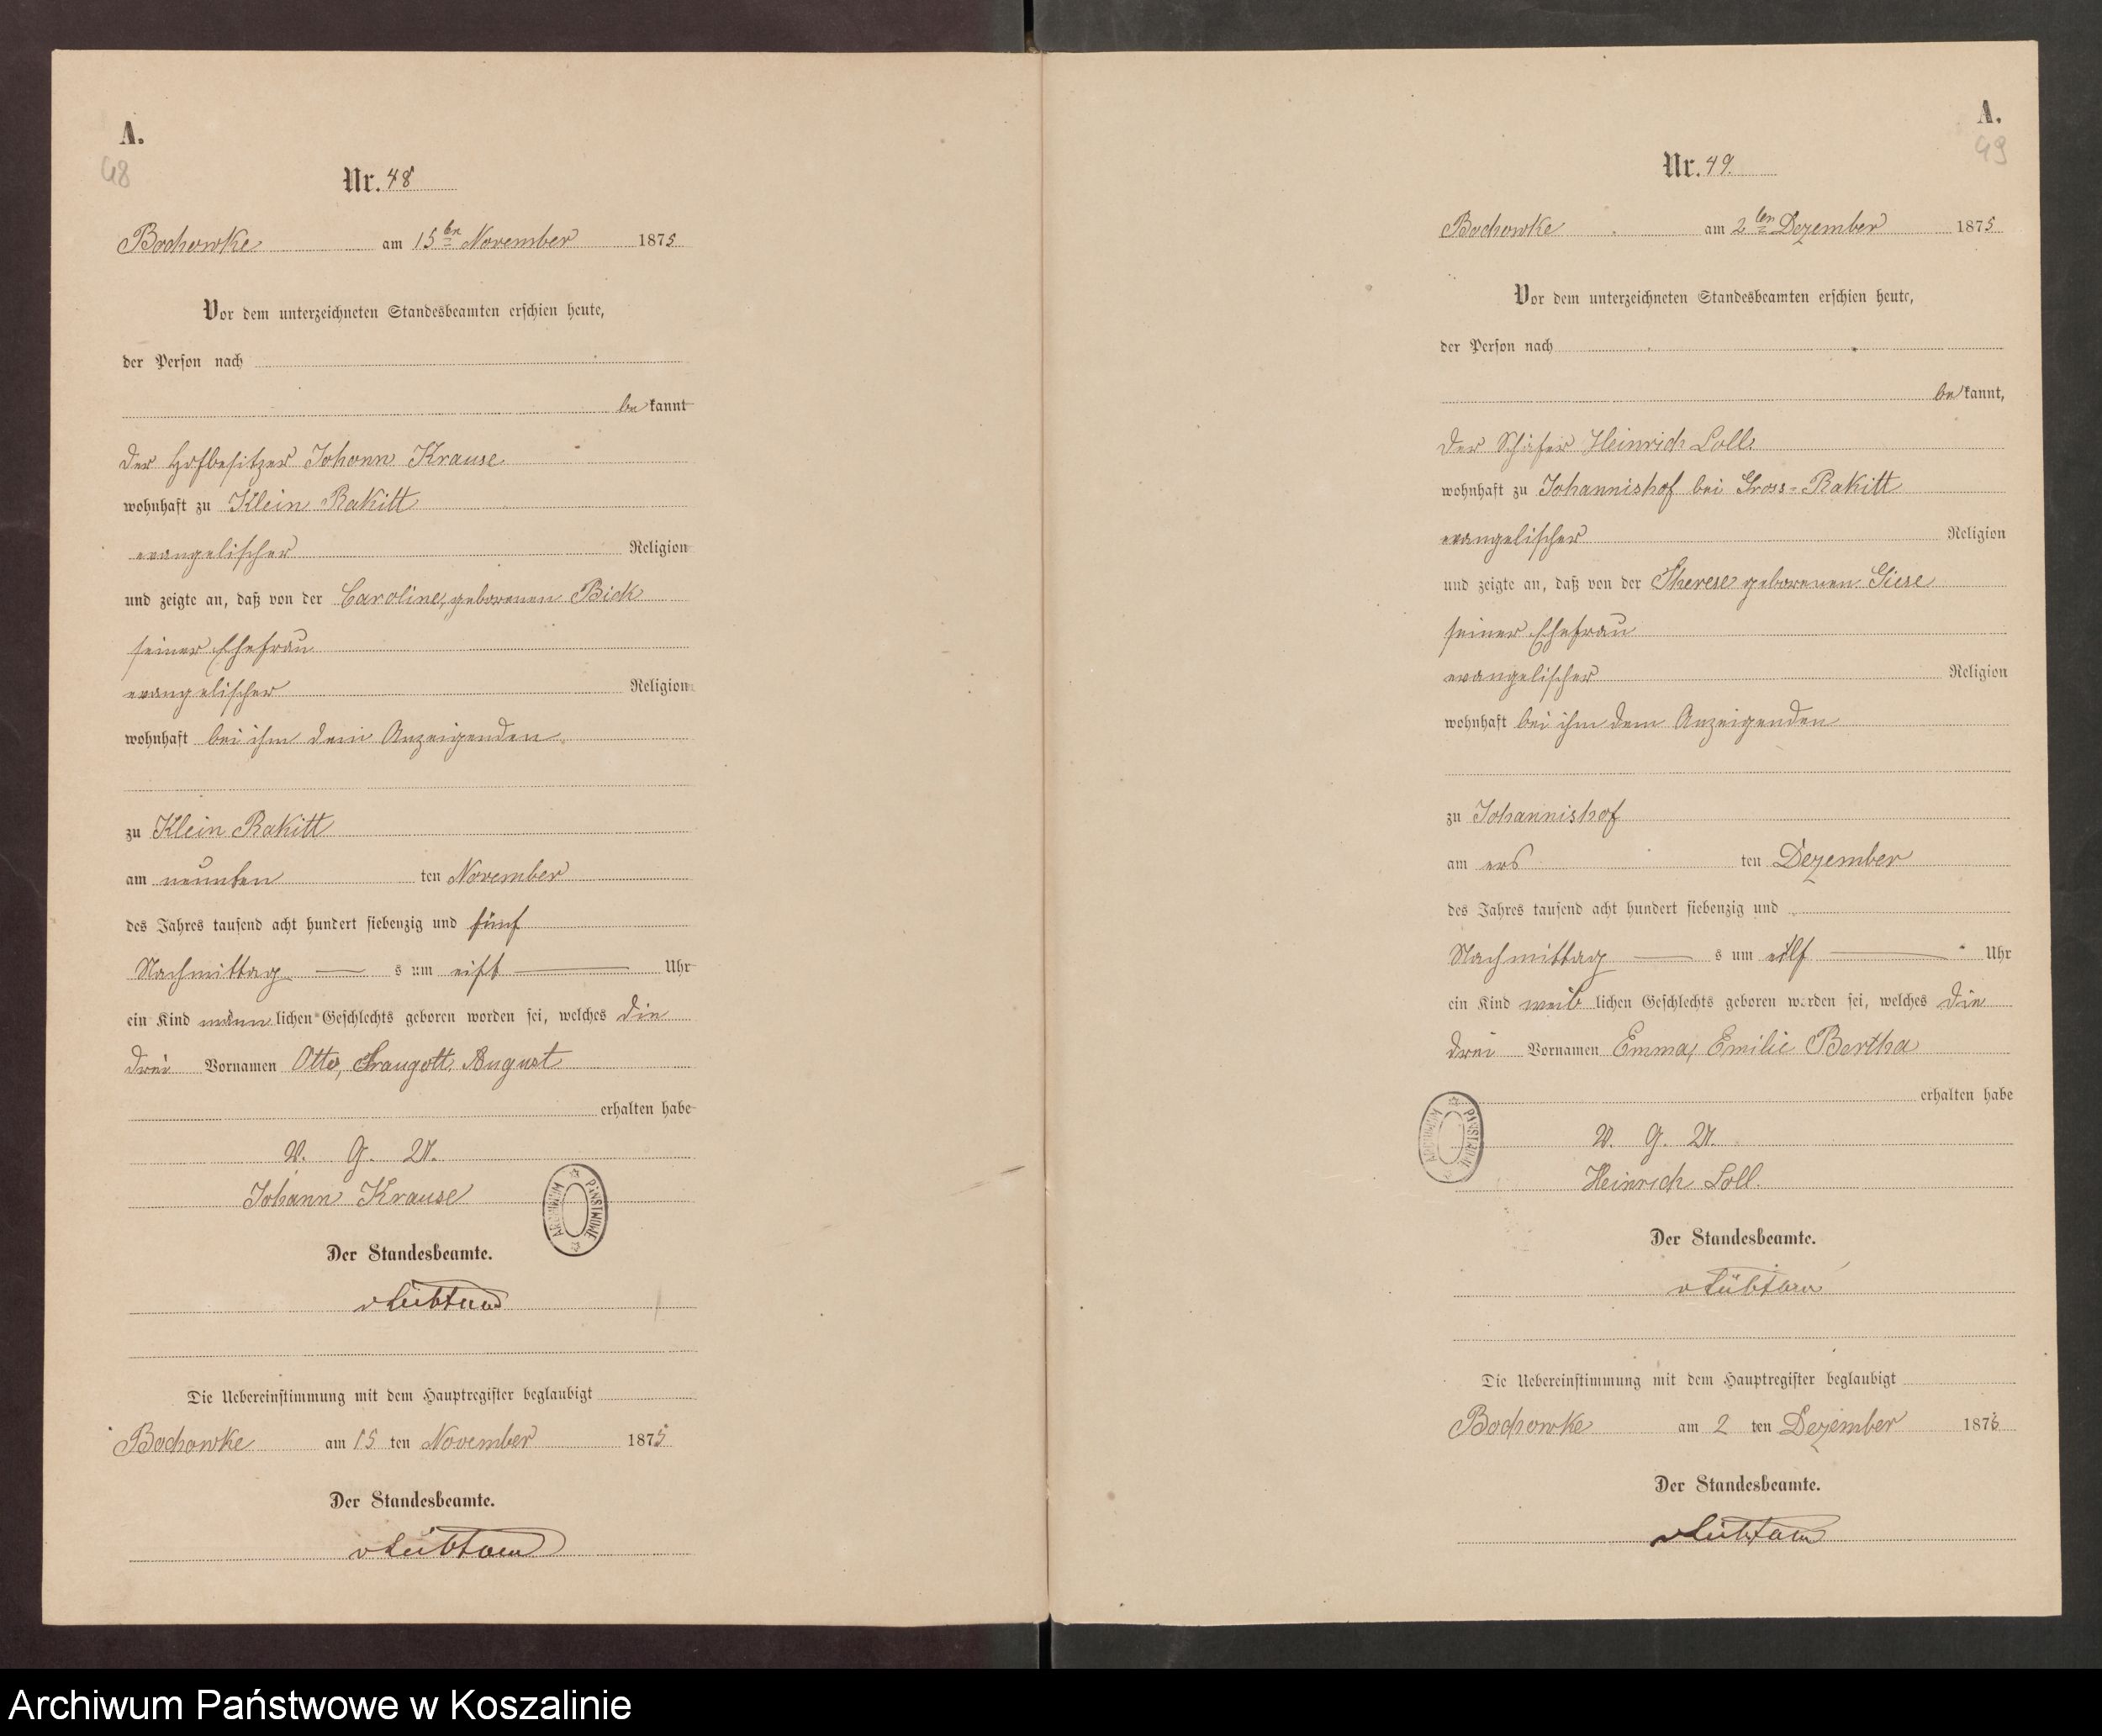 A.
48
Nr. 48
Bochowke am 15ten November 1875
Vor dem unterzeichneten Standesbeamten erschien heute,
der Person nach
be kannt
der Hofbesitzer Johann Krause
wohnhaft zu Klein Rakitt
evangelischer Religion
und zeigte an, daß von der Caroline, geborenen Bick
seiner Ehefrau
evangelischer Religion
wohnhaft bei ihm dem Anzeigenden
zu Klein Rakitt
am neunten ten November
des Jahres tausend acht hundert siebenzig und fünf
Nachmittag s um Uhr
ein Kind männ lichen Geschlechts geboren worden sei, welches die
drei Vornamen Otto, Traugott, August
erhalten habe
V. G. U.
Johann Krause
ARCHIWUM PAŃSTWOWE
Der Standesbeamte.
Die Uebereinstimmung mit dem Hauptregister beglaubigt
Bochowke am 15 ten November 1875
Der Standesbeamte.
A.
49
Nr. 49.
Bochowke am 2ten Dezember 1875
Vor dem unterzeichneten Standesbeamten erschien heute,
der Person nach
be kannt,
der Schäfer Heinrich Loll
wohnhaft zu Johannishof bei Gross-Rakitt
evangelischer Religion
und zeigte an, daß von der Therese geborenen Giese
seiner Ehefrau
evangelischer Religion
wohnhaft bei ihm dem Anzeigenden
zu Johannishof
am ers ten Dezember
des Jahres tausend acht hundert siebenzig und
Nachmittag s um eilf Uhr
ein Kind weib lichen Geschlechts geboren worden sei, welches die
drei Vornamen Emma, Emilie Bertha
erhalten habe
ARCHIWUM PAŃSTWOWE
V. G. U.
Heinrich Loll.
Der Standesbeamte.
Die Uebereinstimmung mit dem Hauptregister beglaubigt
Bochowke am 2 ten Dezember 1875
Der Standesbeamte.
Archiwum Państwowe w Koszalinie